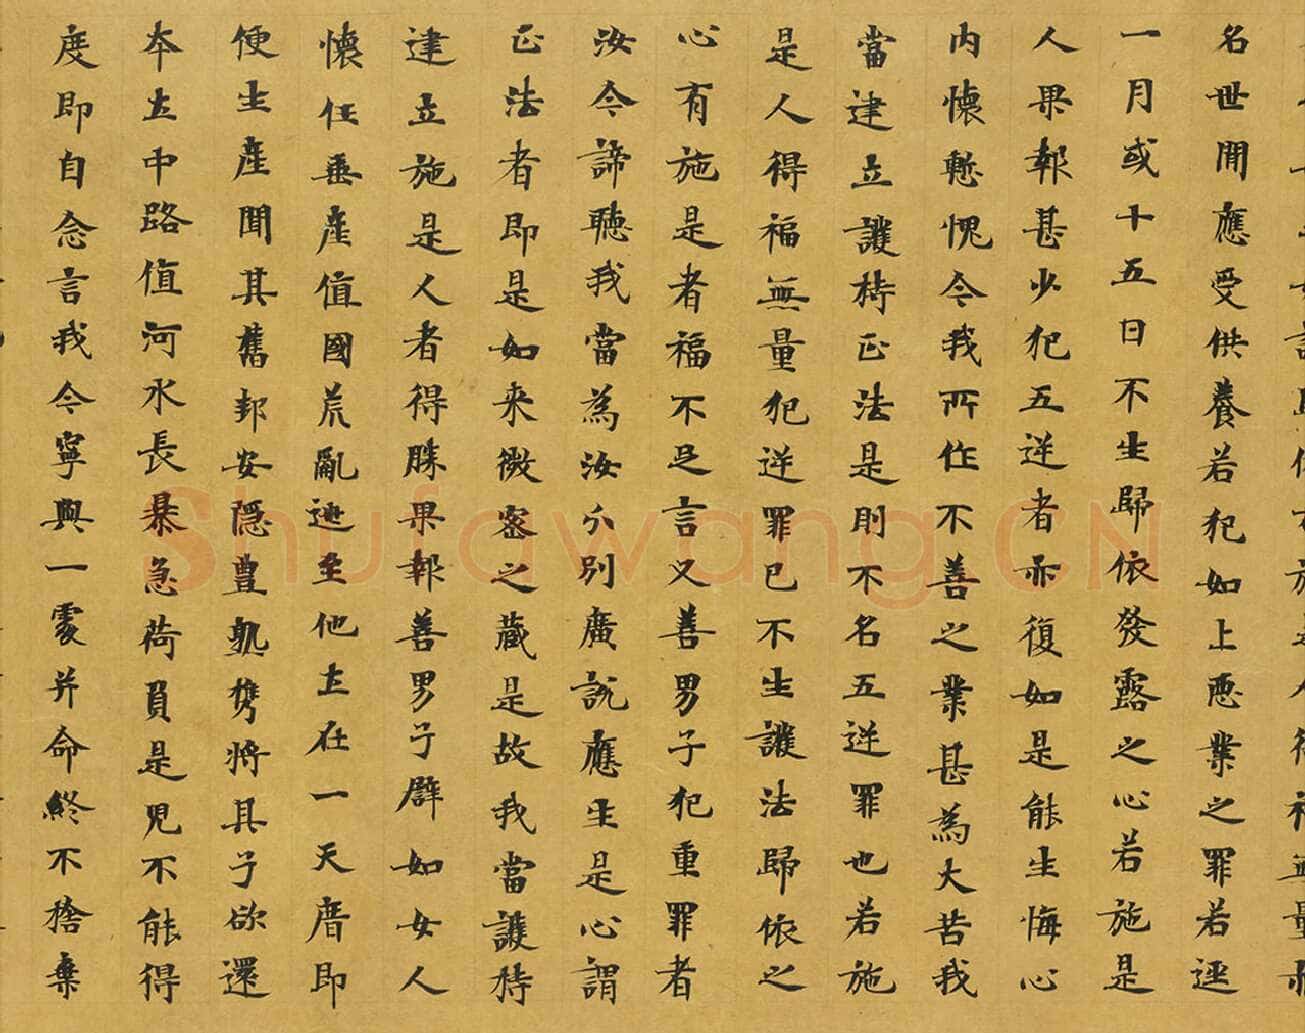 名世間應受供養若犯如上惡業之罪若逕
一月或十五日不生歸依發露之心若施是
人果報甚少犯五逆者亦復如是能生悔心
內懷慙愧今我所作不善之業甚為大苦我
當建立護持正法是則不名五逆罪也若施
是人得福無量犯逆罪已不生護法歸依之
心有施是者福不足言又善男子犯重罪者
汝今諦聽我當為汝分別廣說應生是心謂
正法者即是如来微密之藏是故我當護持
建立施是人者得勝果報善男子譬如女人
懷任垂產值國荒亂逃至他土在一天廟即
便生產聞其舊邦安隱豊熟携將其子欲還
本土中路值河水長暴急荷負是兒不能得
度即自念言我今寧與一處并命終不捨棄
Shufawang.CN